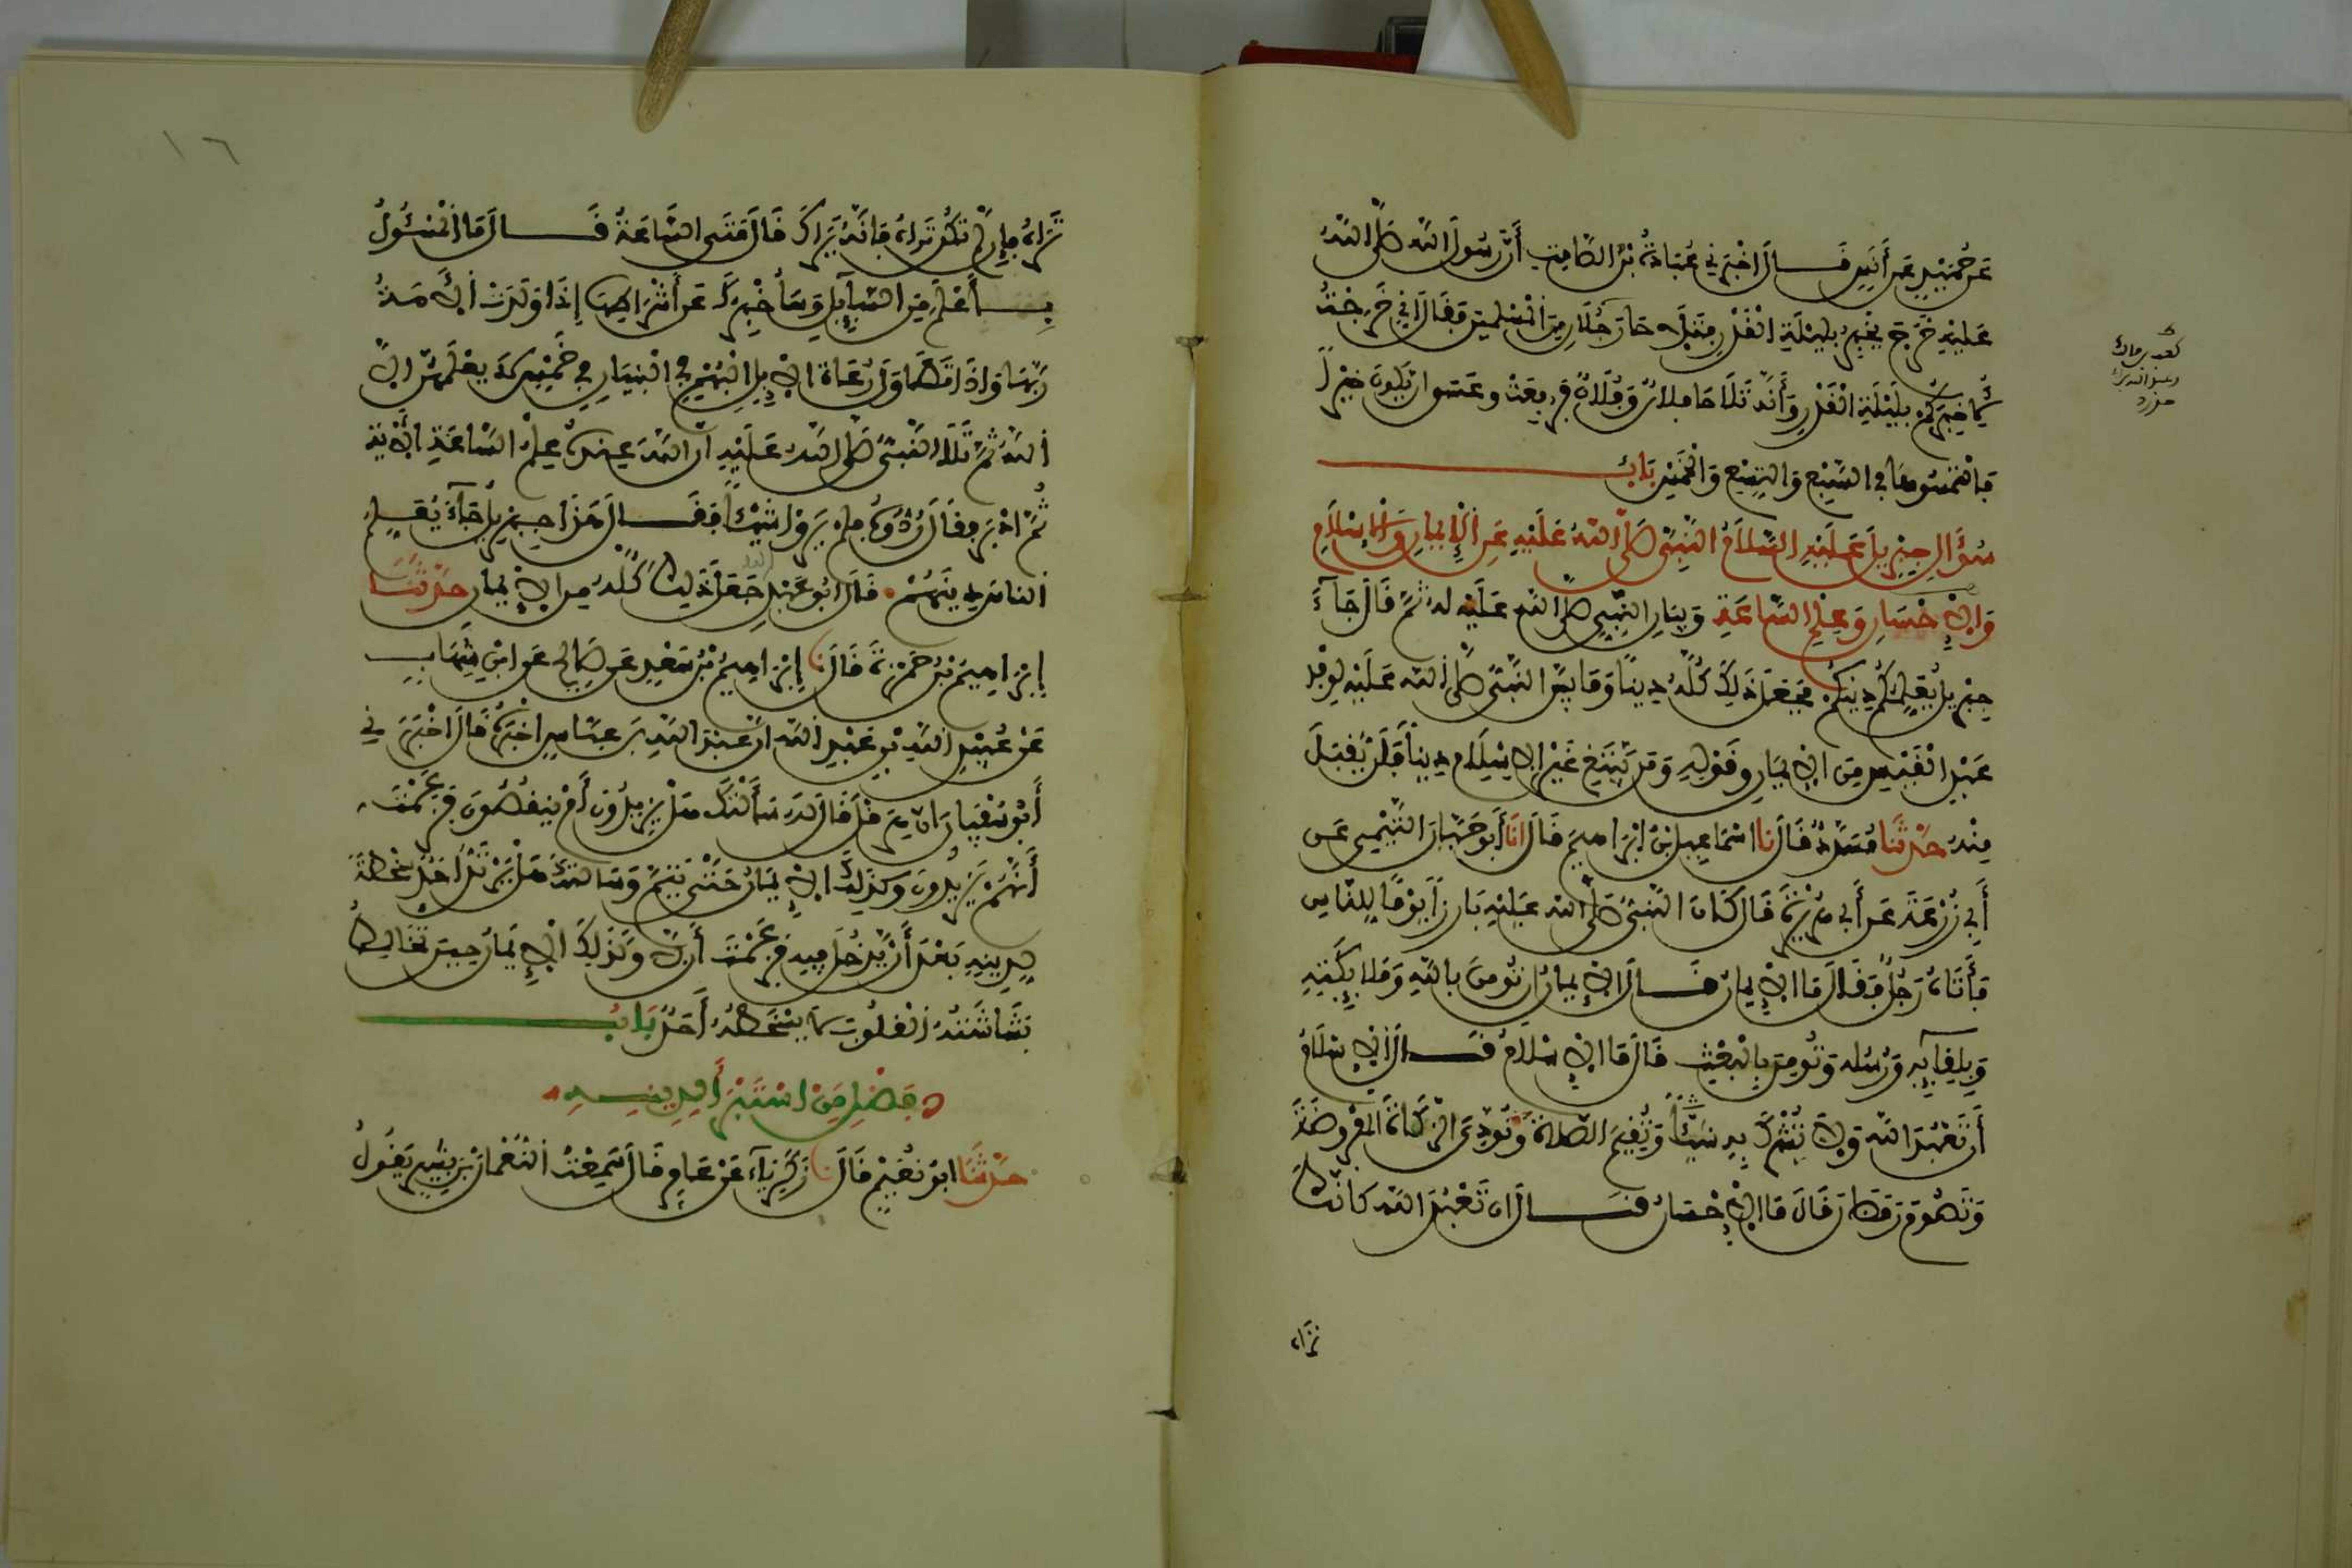 عَن حُمَيْدٍ عَن أَنَسٍ قَـــالَ اخْبَرَنِي عُبَادَةُ بْنُ الصَّامِتِ أَنَّ رَسُولَ اللَّهِ صَلَّى اللَّهُ
عَلَيْهِ خَرَجَ يُخْبِرُ بِلَيْلَةِ الْقَدْرِ فَتَلَاحَا رَجُلَانِ مِنَ الْمُسْلِمِينَ فَقَالَ إِنِّي خَرَجْتُ
لِأُخْبِرَكُمْ بِلَيْلَةِ الْقَدْرِ وَأَنَّهُ تَلَاحَا فُلَانٌ وَفُلَانٌ فَرُفِعَتْ وعَسَى ان يَكُونَ خَيْراً
فَالْتَمِسُوهَا فِي السَّبْعِ وَالتِّسْعِ وَالْخَمْسِ بَابُ
سُؤَالِ جِبْرِيلَ عَلَيْهِ السَّلَامُ النَّبِيَّ صَلَّى اللَّهُ عَلَيْهِ عَنِ الْإِيمَانِ وَالْإِسْلَامِ
وَالْإِحْسَانِ وَعِلْمِ السَّاعَةِ وَبَيَانِ النَّبِيِّ صَلَّى اللَّهُ عَلَيْهِ لَهُ ثُمَّ قَالَ جَاءَ
جِبْرِيلُ يُعَلِّمُكُمْ دِينَكُمْ فَجَعَلَ ذَلِكَ كُلَّهُ دِينًا وَمَا بَيَّنَ النَّبِيُّ صَلَّى اللَّهُ عَلَيْهِ لِوَفْدِ
عَبْدِ الْقَيْسِ مِنَ الْإِيمَانِ وقَوْلِهِ وَمَن يَبْتَغِ غَيْرَ الْإِسْلَامِ دِيناً فَلَنْ يُقْبَلَ
مِنْهُ حَدَّثَنَا مُسَدَّدٌ قَالَ نا اسْمَاعِيلُ بْنُ إِبْرَاهِيمَ قَالَ انَا أَبُو حَيَّانَ التَّيْمِيُّ عَن
أَبِي زُرْعَةَ عَن أَبِي هُرَيْرَةَ قَالَ كَانَ النَّبِيُّ صَلَّى اللَّهُ عَلَيْهِ بَارِزاً يَوْمًا لِلنَّاسِ
فَأَتَاهُ رَجُلٌ فَقَالَ مَا الْإِيمَانُ قَـــالَ الْإِيمَانُ ان تُومِنَ بِاللَّهِ وَمَلَائِكَتِهِ
وَبِلِقَائِهِ وَرُسُلِهِ وَتُومِنَ بِالْبَعْثِ قَالَ مَا الْإِسْلَامُ قَـــالَ الْإِسْلَامُ
أَن تَعْبُدَ اللَّهَ وَلَا تُشْرِكَ بِهِ شَيْئاً وَتُقِيمَ الصَّلَاةَ وَتُؤَدِّيَ الزَّكَاةَ الْمَفْرُوضَةَ
وَتَصُومَ رَمَضَانَ قَالَ مَا الْإِحْسَانُ قَـــالَ ان تَعْبُدَ اللَّهَ كَأَنَّكَ
تَرَاهُ
تَرَاهُ فَإِن لَّمْ تَكُن تَرَاهُ فَإِنَّهُ يَرَاكَ قَالَ مَتَى السَّاعَةُ قَـــالَ مَا الْمَسْئُولُ
بِـــأَعْلَمَ مِنَ السَّائِلِ وَسَأُخْبِرُكَ عَن أَشْرَاطِهَا إِذَا وَلَدَتْ الْأَمَةُ
رَبَّهَا وَإِذَا تَطَاوَلَ رُعَاةُ الْإِبِلِ الْبُهْمِ فِي الْبُنْيَانِ فِي خَمْسٍ لَا يَعْلَمُهُنَّ إِلَّا
اللَّهُ ثُمَّ تَلَا النَّبِيُّ صَلَّى اللَّهُ عَلَيْهِ ان اللَّهَ عِندَهُ عِلْمُ السَّاعَةِ الْأيَةَ
ثُمَّ ادْبَرَ فقَالَ رُدُّوهُ فلم يَرَوْا شَيْئاً فَقَـــالَ هَذَا جِبْرِيلُ جَاءَ يُعَلِّمُ
النَّاسَ دِينَهُمْ قَالَ ابُو عَبْدِ اللَّهِ جَعَلَ ذَلِكَ كُلَّهُ مِنَ الْإِيمَانِ حَدَّثَنَا
إِبْرَاهِيمُ بْنُ حَمْزَةَ قَالَ نا إِبْرَاهِيمُ بْنُ سَعْدٍ عَن صَالِحٍ عَن ابْنِ شِهَابٍ
عَنْ عُبَيْدِ اللَّهِ بْنِ عَبْدِ اللَّهِ ان عَبْدَ اللَّهِ بْنَ عَبَّاسٍ اخْبَرَهُ قَالَ اخْبَرَنِي
أَبُو سُفْيَانَ ان هِرَقْلَ قَالَ لَهُ سَأَلْتُكَ هَلْ يَزِيدُونَ أَمْ يَنقُصُونَ فَزَعَمْتَ
أَنَّهُمْ يَزِيدُونَ وَكَذَلِكَ الْإِيمَانُ حَتَّى يَتِمَّ وَسَأَلْتُكَ هَلْ يَرْتَدُّ احَدٌ سَخْطَةً
لِدِينِهِ بَعْدَ أَن يَدْخُلَ فِيهِ فَزَعَمْتَ أَن لَا وَكَذَلِكَ الْإِيمَانُ حِينَ تُخَالِطُ
بَشَاشَتُهُ الْقُلُوبَ لَا يَسْخَطُهُ أَحَدٌ بَابُ
فَضْلِ مَنِ اسْتَبْرَأَ لِدِينِـــهِ
حَدَّثَنَا ابُو نُعَيْمٍ قَالَ نا زَكَرِيَّاءُ عَنْ عَامِرٍ قَالَ سَمِعْتُ النُّعْمَانَ بْنَ بَشِيرٍ يَقُولُ
١٦